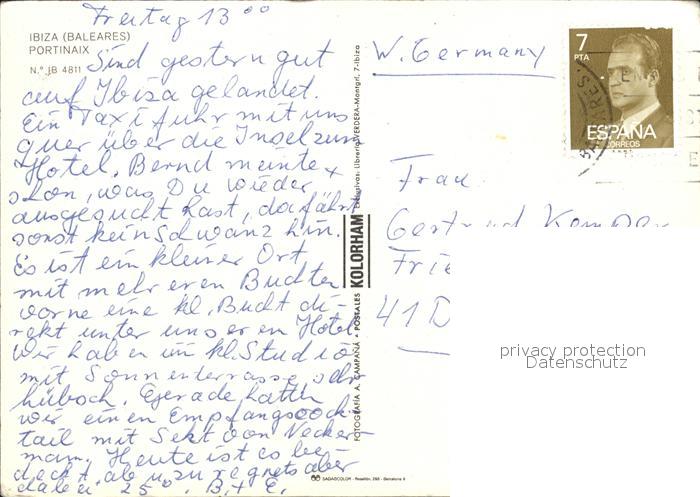 Freitag 13⁰⁰
IBIZA (BALEARES)
PORTINAIX
N.º IB 4811
Sind gestern gut
auf Ibiza gelandet.
Ein Taxi fuhr mit uns
quer über die Insel zum
Hotel. Bernd meinte
schon, was Du wieder
ausgesucht hast, da fährt
sonst kein Schwanz hin.
Es ist ein kleiner Ort
mit mehreren Buchten
vorne eine kl. Bucht di-
rekt unter unseren Hotel
Wir haben ein kl. Studio
mit Sonnenterrasse sehr
hübsch. Gerade hatten
wir einen Empfangscock-
tail mit Sekt von Necker-
mann. Heute ist es be-
deckt, ab u. zu regnets aber
dabei 25°. B. + E.
FOTOGRAFIA A. CAMPAÑÁ • POSTALES KOLORHAM Exclusivas: Librería VERDERA-Montgrí, 7-Ibiza
SADAGCOLOR - Rosellón, 298 - Barcelona 9
W. Germany
7
PTA
ESPAÑA
CORREOS
Frau
Gertrud Kemper
Frie
41 D
privacy protection
Datenschutz